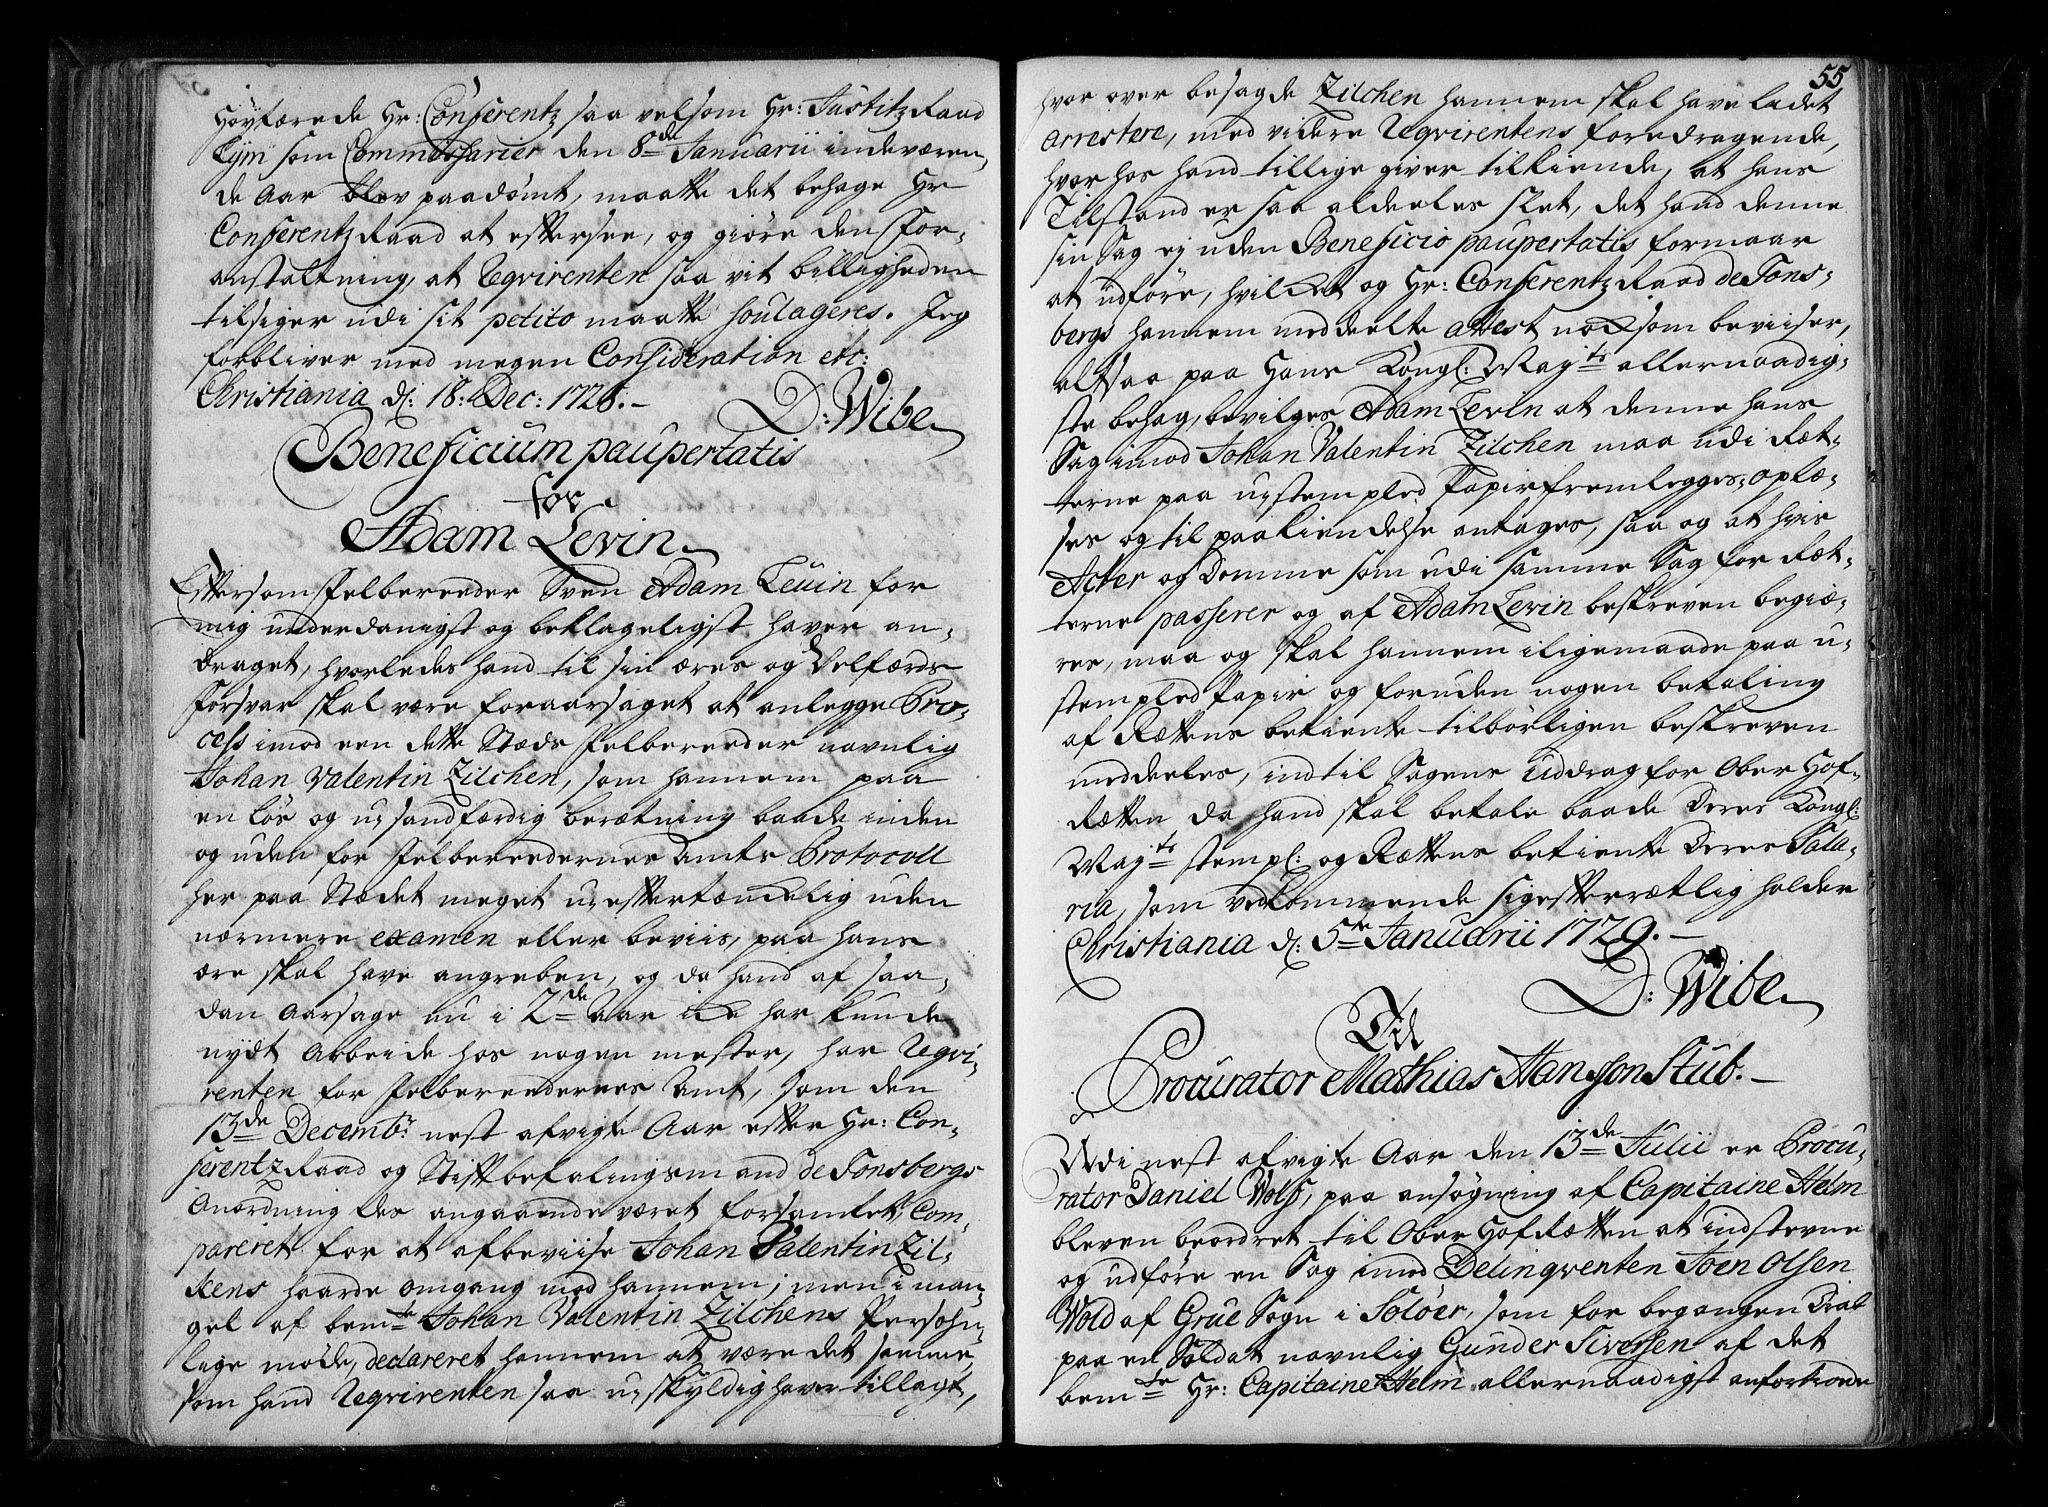 Høyærede Hr: Conferentz saa velsom Hr: Justitz Raad
Lÿm som Commissarier den 8de Januarii indeværen,
de Aar blev paadømt, maatte det behage Hr
Conferentz Raad at eftersee, og giøre den For-
anstaltning, at Reqvirenten saa vit billigheden
tilsiger udi sit petito maatte soulageres. Jeg
forbliver med megen Consideration etc:
Christiania d: 18: Dec: 1728.-
D: Wibe
Beneficium paupertatis
for
Adam Levin
Eftersom Felbereder Sven Adam Levin for
mig underdanigst og beklageligst haver an-
draget, hvorledes hand til sin æres og Velfærds
Forsvar skal være foraarsaget at anlegge Pro-
cess imod een dette Stæds Felbereeder navnlig
Johan Valentin Zilchen, som hannem paa
en løs og u-sandfærdig berætning baade inden
og uden for Felberedernes Amts Protocoll
her paa Stædet meget u-eftertænckelig uden
nærmere examen eller beviis, paa hans
ære skal have angreben, og da hand af saa-
dan Aarsage nu i 2de Aar icke har kunde
nÿdt Arbeide hos nogen mester, har Reqvi-
renten for Felberedernes Amt, som den
13de Decembr: nest afvigte Aar efter Hr: Con-
ferentz Raad og Stiftbefalingsmand de Tonsbergs
Anordning des angaaende været forsamlet, Com-
pareret for at afbeviise Johan Valentin Zil-
kens haarde omgang mod hannem; men i man-
gel af bemte Johan Valentin Zilchens Persohn-
lige møde, declareret hannem at være det samme,
som hand Reqvirenten saa u-skyldig haver tillagt,
55
hvor over besagde Zilchen hannem skal have ladet
arrestere, med videre Reqvirentens foredragende,
hvor hos hand tillige giver tilkiende, at hans
Tilstand er saa aldeeles slet, det hand denne
sin Sag ej uden Beneficio paupertatis formaar
at udføre, hvilcket og Hr: Conferentz Raad de Tons-
bergs hannem meddeelte attest nocksom beviiser,
altsaa paa Hans Kongl: Mayts allernaadig-
ste behag, bevilges Adam Levin at denne hans
Sag imod Johan Valentin Zilchen maa udi Ræt-
terne paa u-stempled Papir fremlegges, oplæ-
ses og til paakiendelse antages, saa og at hvis
Acter og Domme som udi samme Sag for Ræt-
terne passerer og af Adam Levin beskreven begiæ-
res, maa og skal hannem iligemaade paa u-
stempled Papir og foruden nogen betaling
af Rættens betiente tilbørligen beskreven
meddeeles, indtil Sagens Uddrag for Ober Hof-
Rætten da hand skal betale baade Deres Kongl:
Mayts stempl: og Rættens betiente Deres Sala-
ria, som vedkommende sig efterrætlig holder
Christiania d: 5te Januarii 1729.-
D: Wibe
Til
Procurator Mathias Hansson Stub.-
Udi nest afvigte Aar den 13de Julii er Procu-
rator Daniel Wolf, paa ansøgning af Capitaine Helm
bleven beordret til Ober Hof Rætten at indstevne
og udføre en Sag imod Delinqventen Joen Olsen
Wold af Grue Sogn i Soløer, som for begangen Drab
paa en Soldat navnlig Gunder Siversen af det
bemte Hr: Capitaine Helm allernaadigst anfortroede